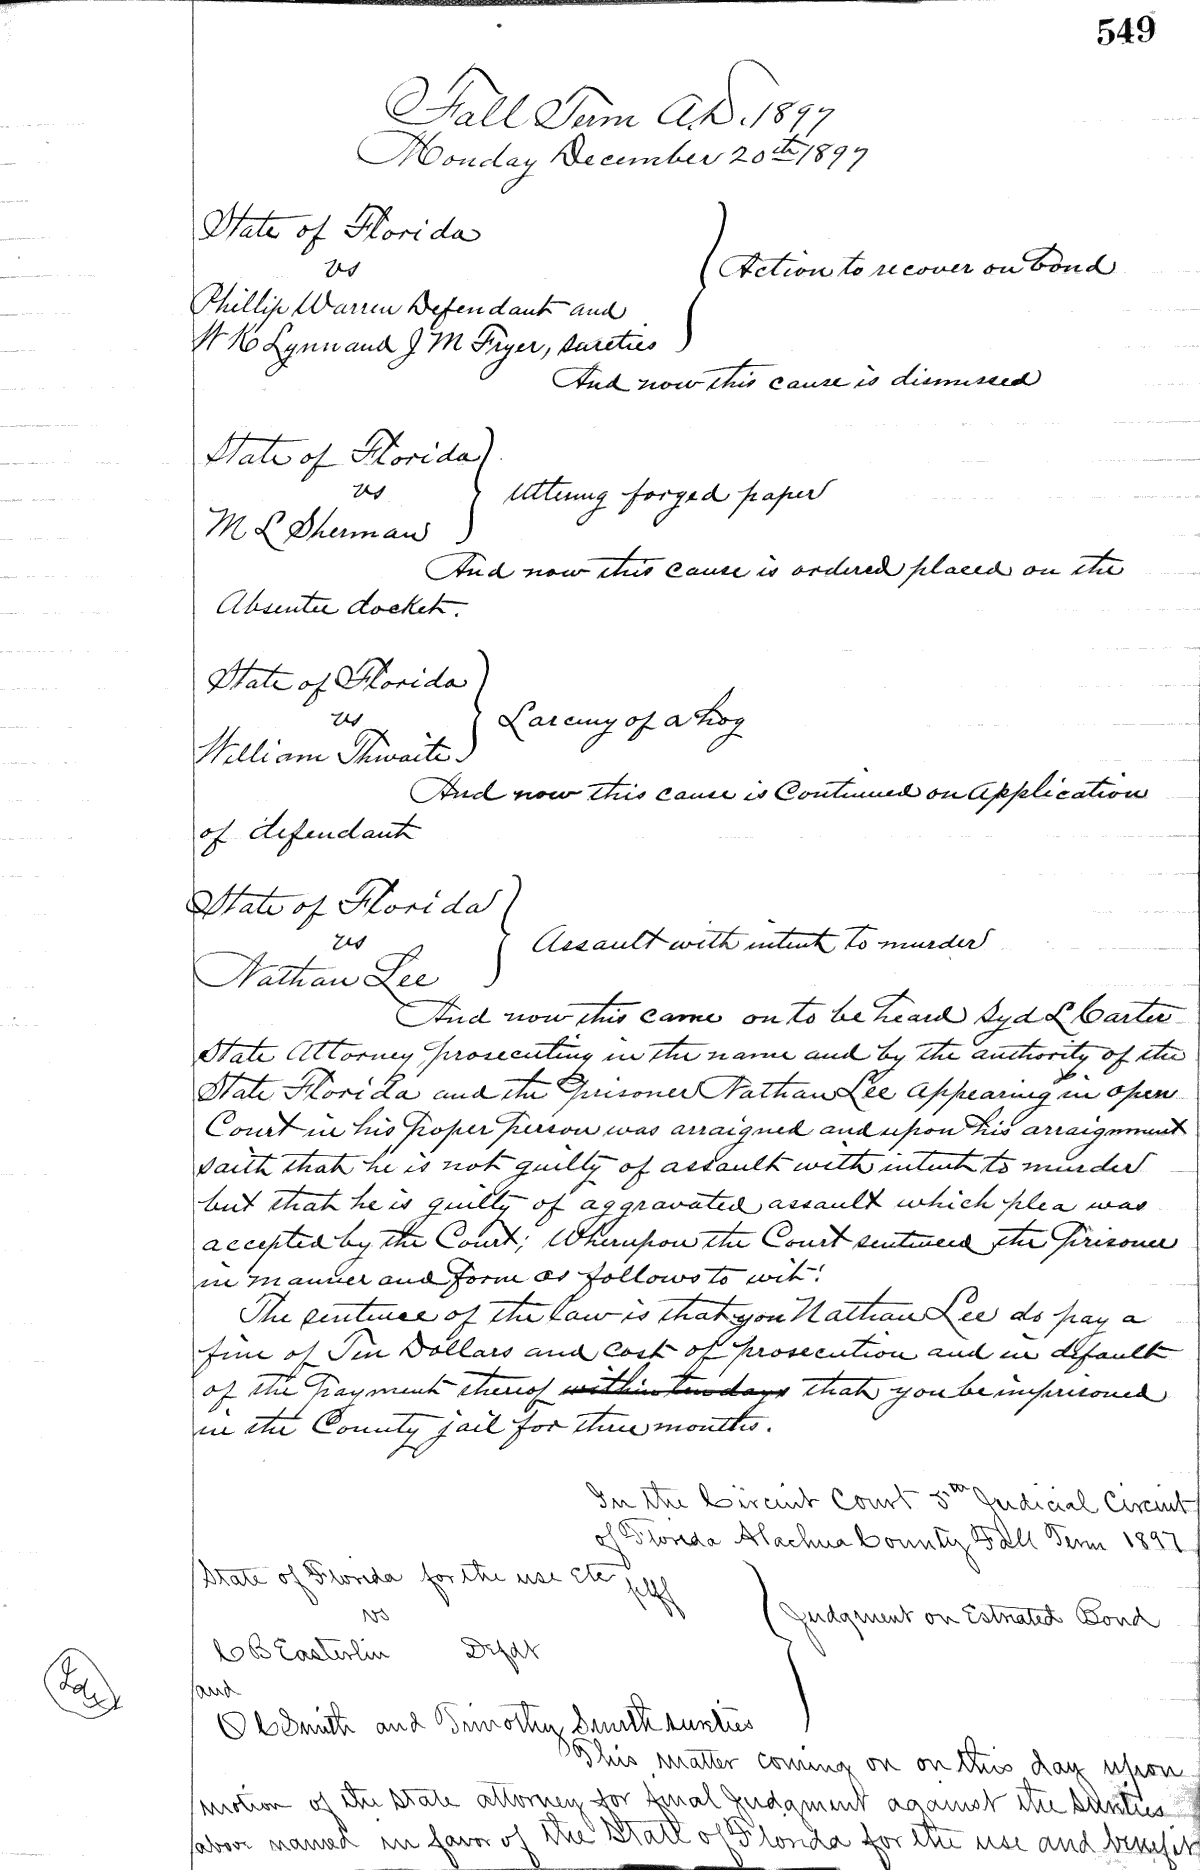 549
Fall Term A.D. 1897
Monday December 20th 1897
State of Florida
vs
Action to recover on bond
Phillip Warren Defendant and
W K Lynn and J M Fryer, sureties
And now this cause is dismissed
State of Florida
vs
Uttering forged paper
M L Sherman
And now this cause is ordered placed on the
Absentee docket.
State of Florida
vs
Larceny of a hog
William Thwaite
And now this cause is Continued on Application
of defendant
State of Florida
vs
Assault with intent to murder
Nathan Lee
And now this came on to be heard Syd L Carter
State Attorney prosecuting in the name and by the authority of the
State Florida and the Prisoner Nathan Lee appearing in open
Court in his proper person was arraigned and upon his arraignment
saith that he is not guilty of assault with intent to murder
but that he is guilty of aggravated assault which plea was
accepted by the Court; Whereupon the Court sentenced the Prisoner
in manner and form as follows to wit:
The sentence of the law is that you Nathan Lee do pay a
fine of Ten Dollars and cost of prosecution and in default
of the payment thereof within ten days that you be imprisoned
in the County jail for three months.
In the Circuit Court 5th Judicial Circuit
of Florida Alachua County Fall Term 1897
State of Florida for the use etc plff
vs
Judgment on Estreated Bond
C B Easterlin Defdt
and
O C Smith and Timothy Smith sureties
This matter coming on on this day upon
motion of the State attorney for final Judgment against the sureties
above named in favor of the State of Florida for the use and benefit